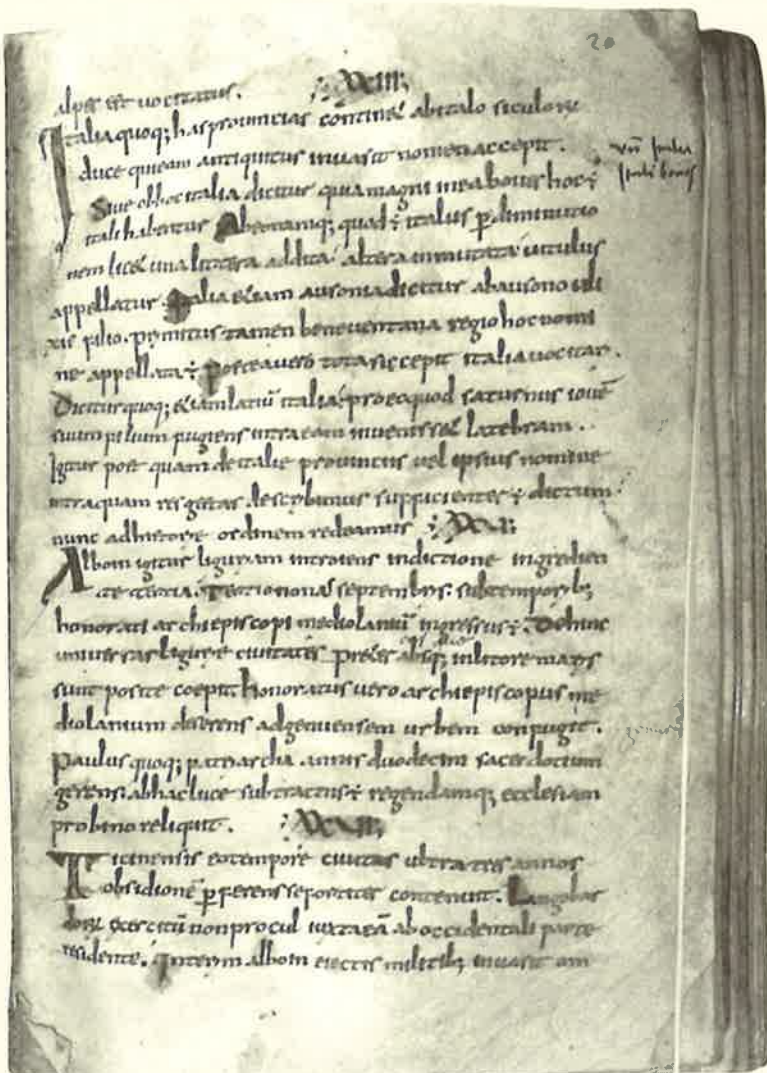 20
alpes est uocitatus. XXIIII;
Italia quoq; has prouincias continet ab italo siculorũ
duce qui eam antiquitus inuasit nomen accepit.
Siue ob hoc italia dicitur quia magni in ea boues hoc ÷
itali habentur Ab eo namq; quod ÷ italus p diminutio
nem licet una littera addita altera inmutata uitulus
appellatur Italia etiam ausonia dicitur ab ausono uli
xis filio. primitus tamen beneuentana regio hoc nomi
ne appellata ÷ postea uero tota sic cepit italia uocitari.
Dicitur quoq; etiam latiũ italia pro eo quod saturnus iouẽ
suum filium fugiens intra eam inuenisset latebram.
Igitur post quam de italie prouinciis uel ipsius nomine
intra quam res gestas describimus sufficienter ÷ dictum
nunc ad historie ordinem redeamus XXV;
Alboin igitur liguriam introiens indictione ingredien
te tertia. Tertio nonas septembris. sub temporib;
honorati archiepiscopi mediolaniũ ingressus ÷. Dehinc
uniuersas ligurie ciuitates preter has q; in litore maris
sunt posite coepit. honoratus uero archiepiscopus me
diolanium deserens ad genuensem urbem confugit.
Paulus quoq; patriarcha annis duodecim sacerdotium
gerens. ab hac luce subtractus ÷ regendamq; ecclesiam
probino reliquit. XXVI;
Ticinensis eo tempore ciuitas ultra tres annos
obsidionẽ pferens se fortiter continuit. Langobar
dorũ exercitũ non procul iuxta eã ab occidentali parte
residente. Interim alboin eiectis militib; inuasit om